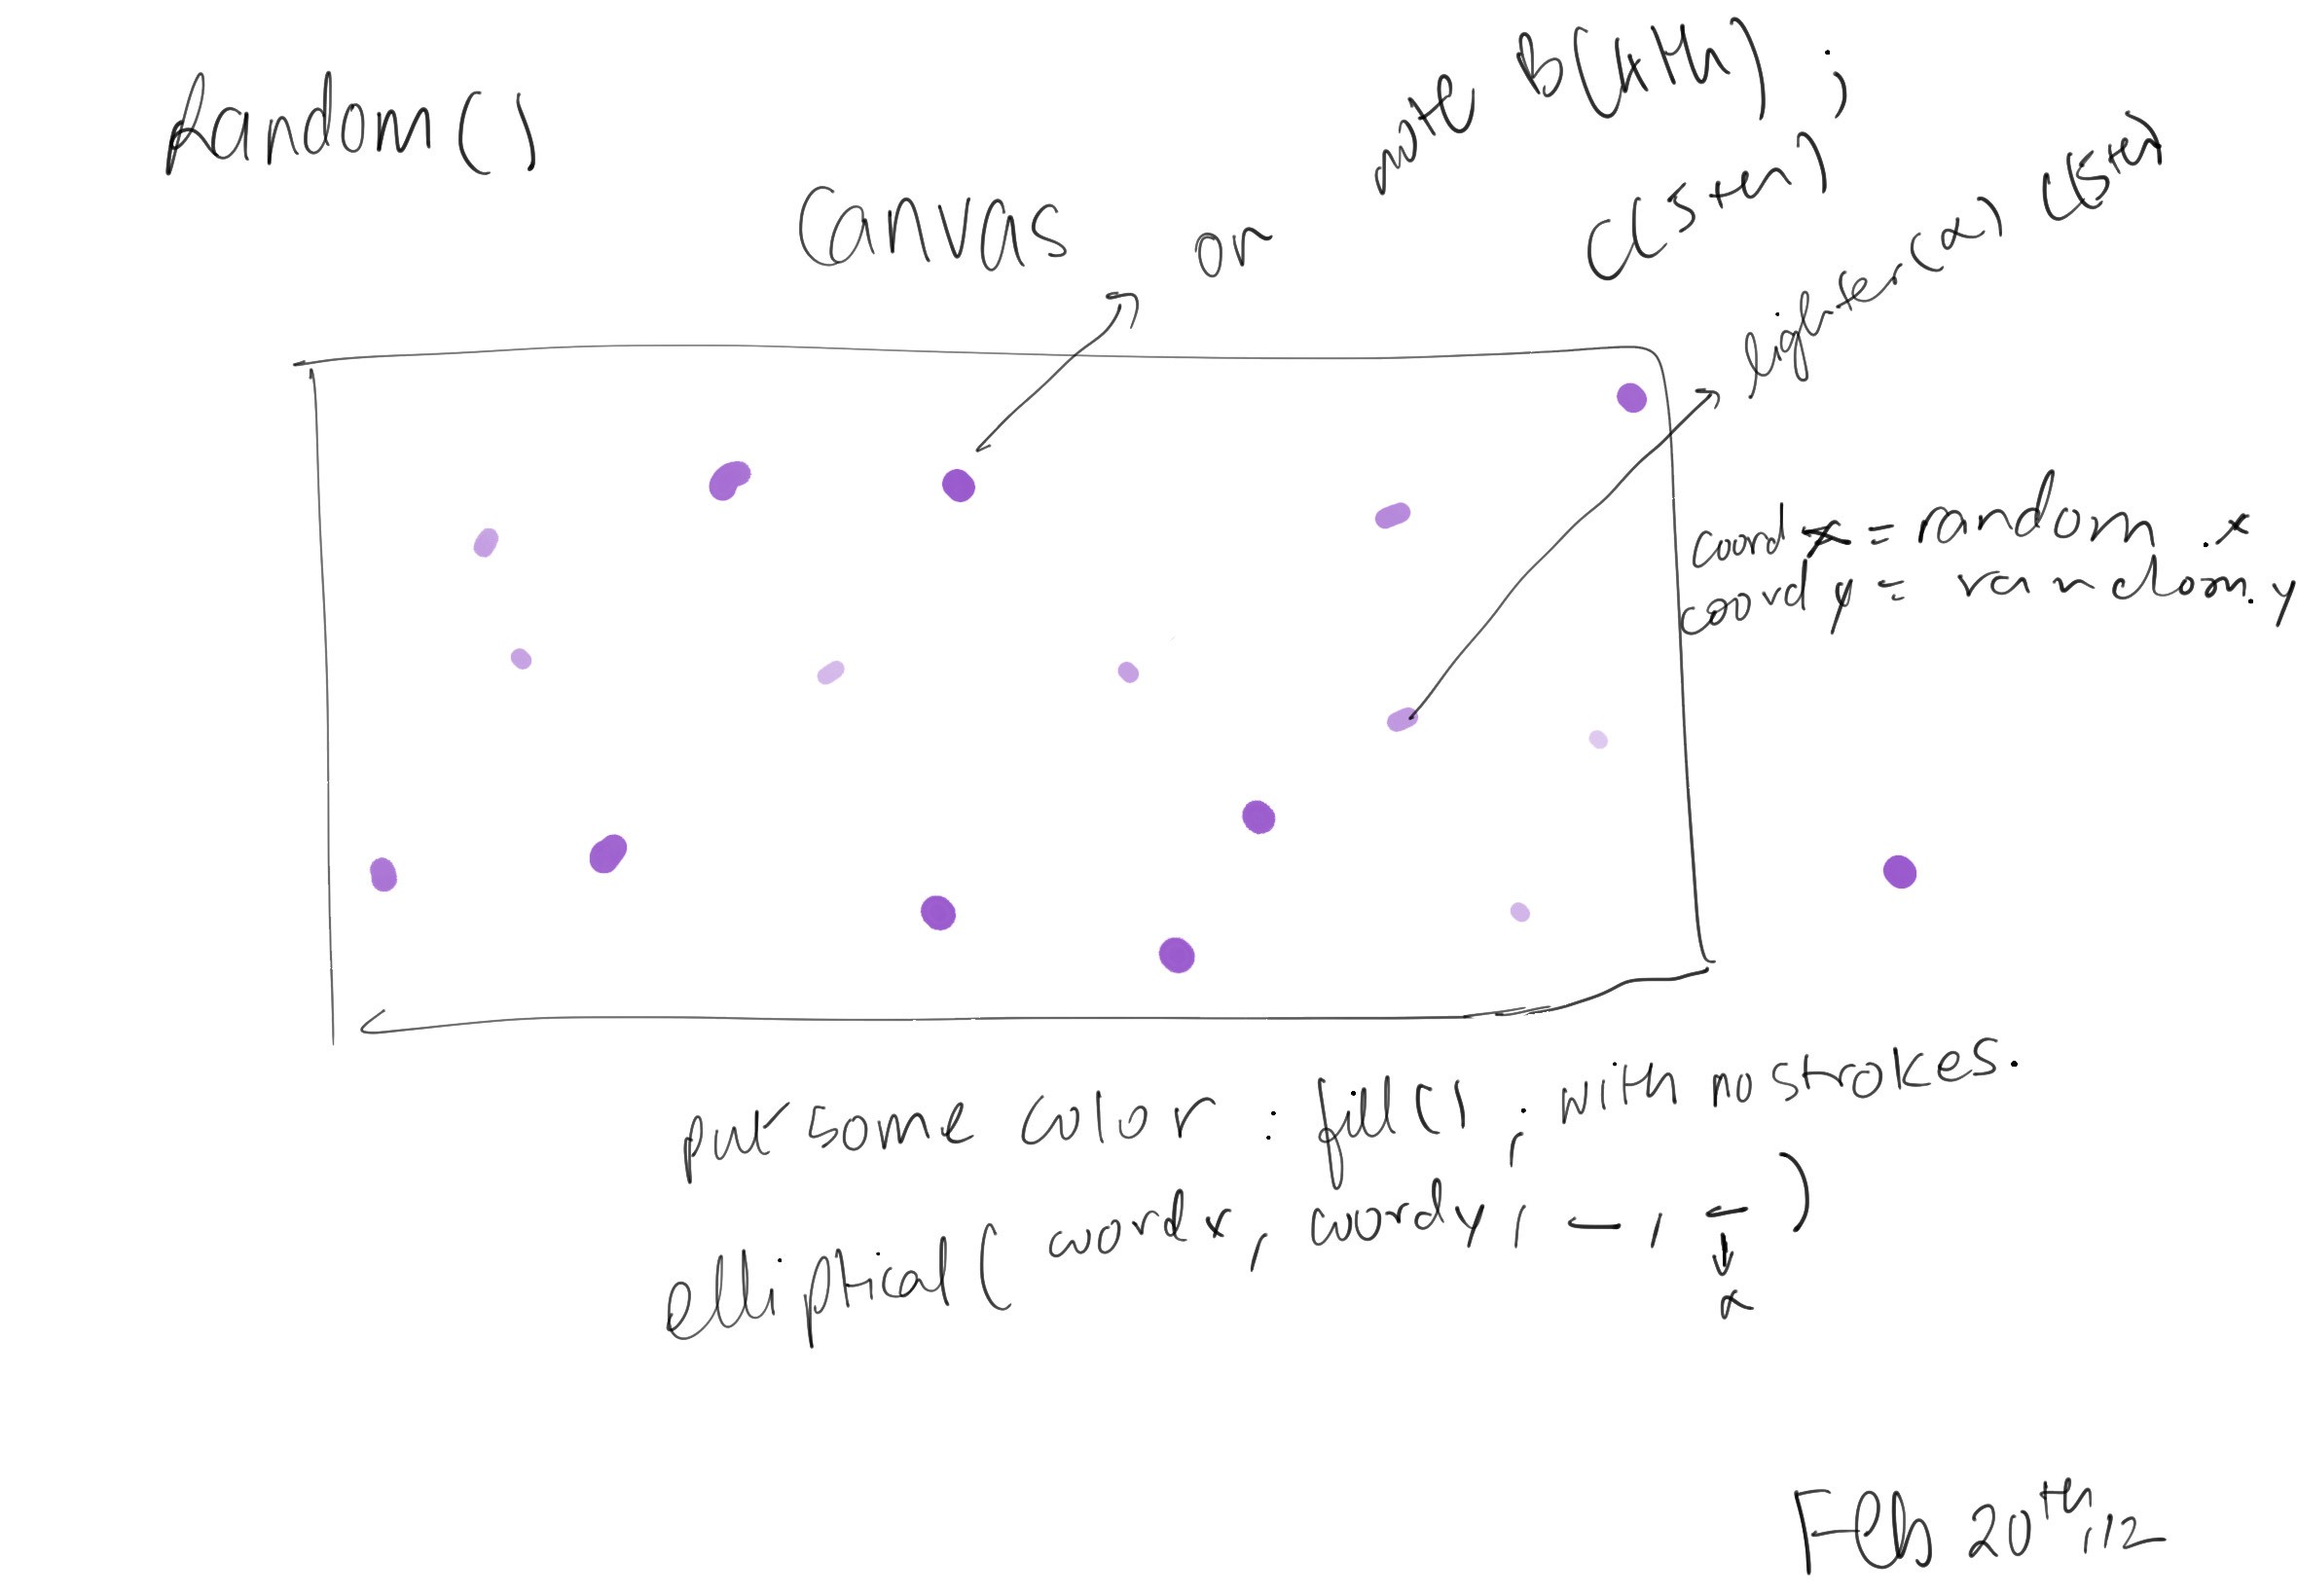 Random()
Canvas or
note B(4th);
C(5ten);
lighter(a) C(5ten)
coord x = random .x
coord y = random.y
put some color : fill() ; with no strokes.
elliptical( coordx, coordy, — , — )
Feb 20th, 12